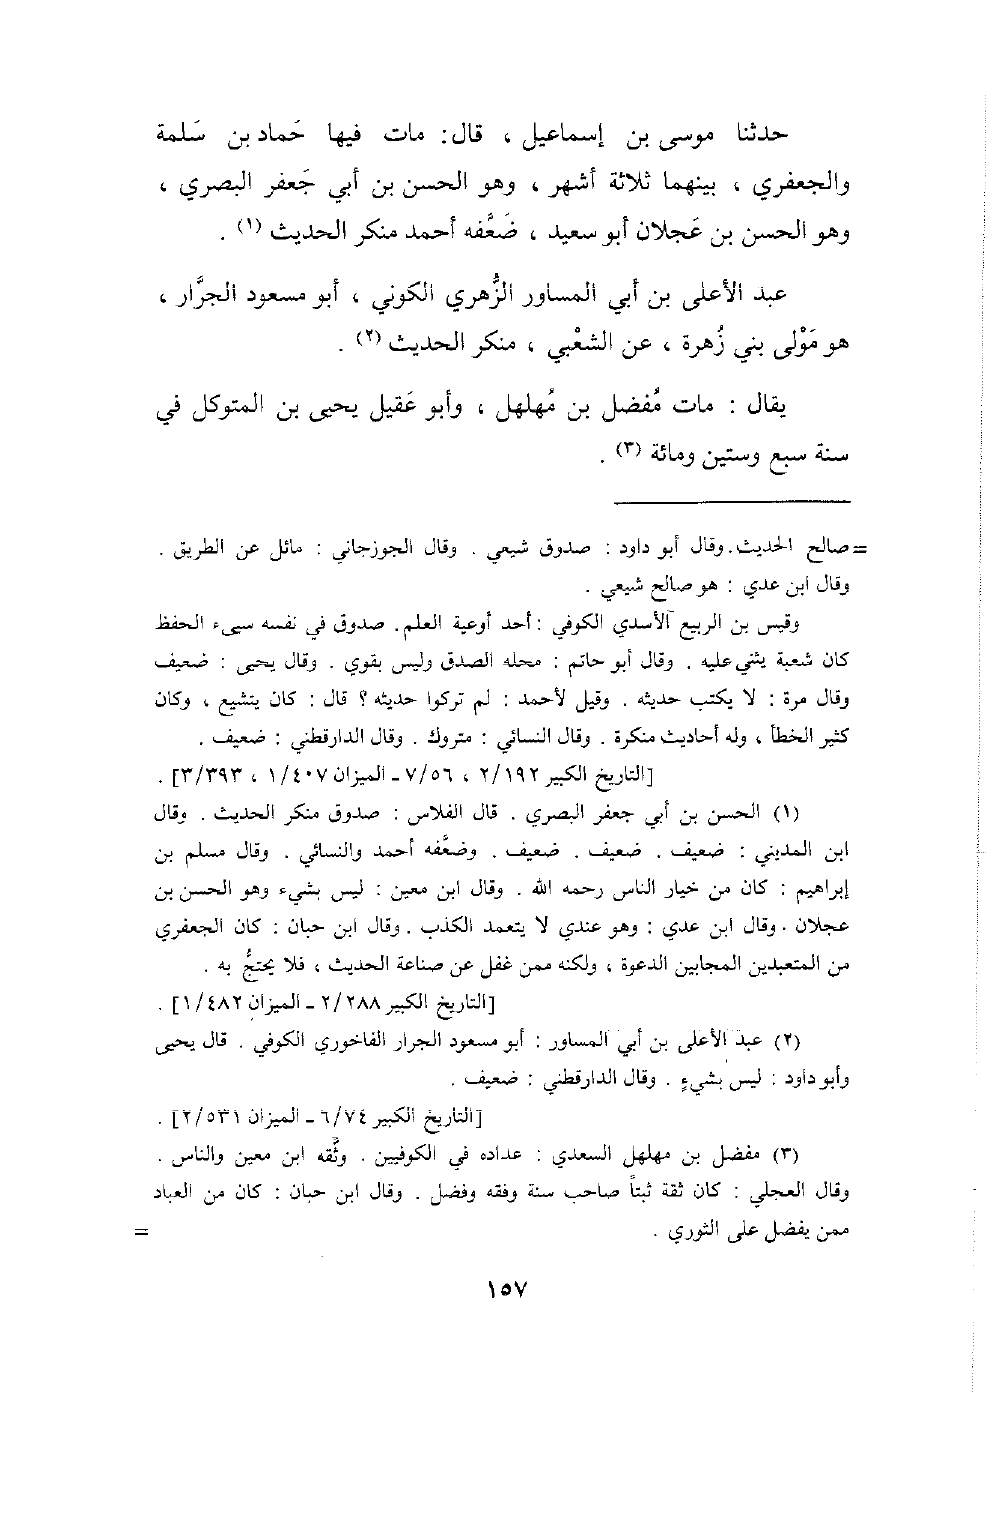 حدثنا موسى بن إسماعيل ، قال: مات فيها حَماد بن سَلمة
والجعفري ، بينهما ثلاثة أشهر ، وهو الحسن بن أبي جَعفر البصري ،
وهو الحسن بن عَجلان أبو سعيد ، ضَعَّفه أحمد منكر الحديث (١) .
عبد الأعلى بن أبي المساور الزُّهري الكوني ، أبو مسعود الجرَّار ،
هو مَوْلى بني زُهرة ، عن الشعْبي ، منكر الحديث (٢) .
يقال : مات مُفضل بن مُهلهل ، وأبو عَقيل يحيى بن المتوكل في
سنة سبع وستين ومائة (٣) .
= صالح الحديث. وقال أبو داود : صدوق شيعي . وقال الجوزجاني : مائل عن الطريق .
وقال ابن عدي : هو صالح شيعي .
وقيس بن الربيع الأسدي الكوفي : أحد أوعية العلم. صدوق في نفسه سيىء الحفظ
كان شعبة يثني عليه . وقال أبو حاتم : محله الصدق وليس بقوي . وقال يحيى : ضعيف
وقال مرة : لا يكتب حديثه . وقيل لأحمد : لم تركوا حديثه ؟ قال : كان يتشيع ، وكان
كثير الخطأ ، وله أحاديث منكرة . وقال النسائي : متروك . وقال الدارقطني : ضعيف .
[التاريخ الكبير ٢/١٩٢ ، ٧/٥٦ - الميزان ١/٤٠٧ ، ٣/٣٩٣] .
(١) الحسن بن أبي جعفر البصري . قال الفلاس : صدوق منكر الحديث . وقال
ابن المديني : ضعيف . ضعيف . ضعيف . وضعَّفه أحمد والنسائي . وقال مسلم بن
إبراهيم : كان من خيار الناس رحمه الله . وقال ابن معين : ليس بشيء وهو الحسن بن
عجلان . وقال ابن عدي : وهو عندي لا يتعمد الكذب . وقال ابن حبان : كان الجعفري
من المتعبدين المجابين الدعوة ، ولكنه ممن غفل عن صناعة الحديث ، فلا يحتجُّ به .
[التاريخ الكبير ٢/٢٨٨ - الميزان ١/٤٨٢] .
(٢) عبد الأعلى بن أبي المساور : أبو مسعود الجرار الفاخوري الكوفي . قال يحيى
وأبو داود : ليس بشيءٍ . وقال الدارقطني : ضعيف .
[التاريخ الكبير ٦/٧٤ - الميزان ٢/٥٣١] .
(٣) مفضل بن مهلهل السعدي : عداده في الكوفيين . وثَّقه ابن معين والناس .
وقال العجلي : كان ثقة ثبتاً صاحب سنة وفقه وفضل . وقال ابن حبان : كان من العباد
ممن يفضل على الثوري . =
١٥٧